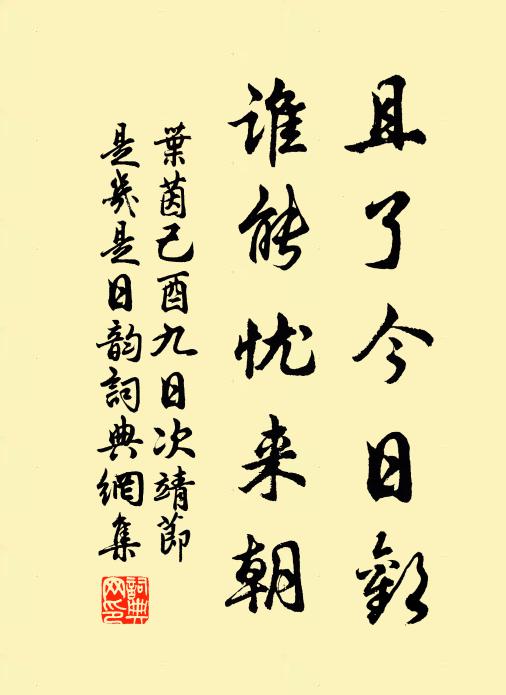 且了今日歡
谁能忧来朝
葉茵己酉九日次靖節
是岁是日韵詞典網集
詞典网印